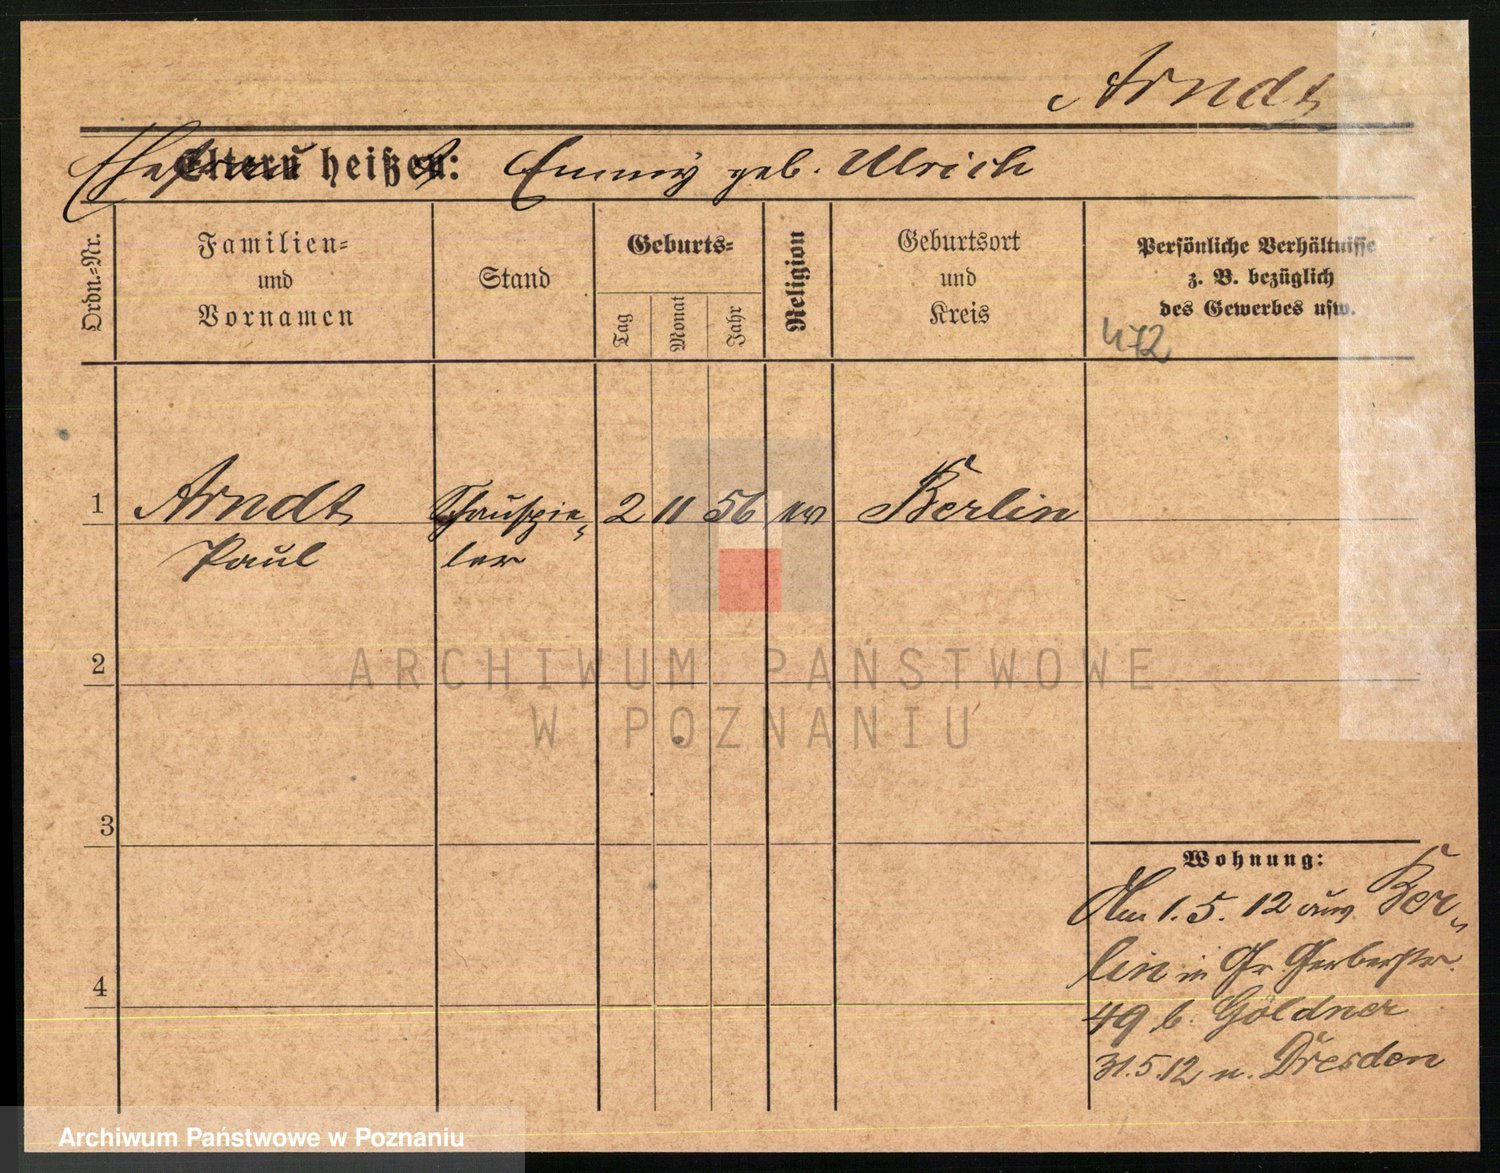 Arndt
Eltern heißen: Ehefrau Emmy geb. Ulrich
Ordn.=Nr.
Familien=
und
Vornamen
Stand
Geburts=
Tag
Monat
Jahr
Religion
Geburtsort
und
Kreis
Persönliche Verhältnisse
z. B. bezüglich
des Gewerbes usw.
472
1 Arndt Schauspie- 2 11 56 ev Berlin
Paul ler
2
ARCHIWUM PAŃSTWOWE
W POZNANIU
3
Wohnung:
Am 1. 5. 12 aus Ber-
lin in Gr. Gerberstr.
4
49 b. Göldner
31.5.12 n. Dresden
Archiwum Państwowe w Poznaniu